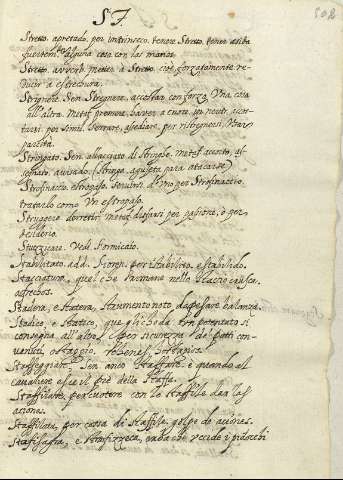 ST.
502
Stretto, apretado, per intrinseco. tenere Stretto, tener asida
fuertemte alguna cosa con las manos.
Stretto, averb. metter a Stretto, cioè forzatamente re-
ducir a estrechura.
Strignere. Sen Stregnere, accostar con forza Una cosa
all'altra. Metaf. premere, haver a cuore. in neutr. accos-
tarsi. per simil. Serrare, assediare, per ristregnersi, Usar
parsità.
Stringato. Sen allacciato di Stringhe. metaf. accorto, as-
segnato, avisado (Stringa, agujeta para atacarse)
Strofinaccio, estropajo, servirsi d'uno per Strofinaccio,
tratarlo como Un estropajo.
Struggere, derretir. metaf. disfarsi per passione, o per
desiderio.
Stuzzicare. Ved. Fornicaio.
Stabilitato. add. Fioren. per Stabilito, establido.
Stacciatura, quel che rimane nello Staccio, crusca,
afrechos.
Stadera, e Statera, strumento noto da pesare, balanza.
Stadico, e Statico, que Richoda Un potentato si
consegna all'altro per sicurezza de' patti con-
venuti, ostaggio, rehenes,
Staffeggiare. Sen. anco Staffare. è quando al
cavaliere esce il piè della Staffa.
Staffilare, percuotere con lo Staffile, dar las
aciones.
Staffilata, percossa di Staffile, golpe de aciones.
Stafisagra, e Stafizzeca, erba che uccide i pidocchi